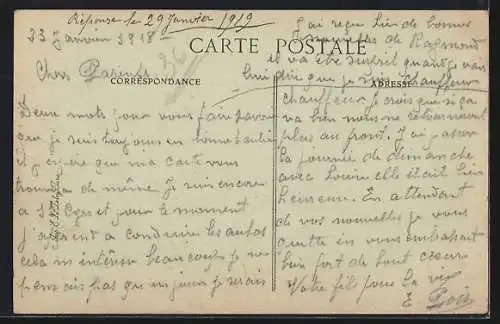 Réponse le 29 Janvier 1919
23 Janvier 1918
CARTE POSTALE
Chers Parents
CORRESPONDANCE
ADRESSE
Deux mots pour vous faire savoir
que je suis toujours en bonne santé
et j'espère que ma carte vous
trouvera de même. Je suis encore
a St et pour le moment
j'apprend a conduire les autos
cela m'intéresse beaucoup je ne
pensais pas que un jour je serais
J'ai reçu hier de bonnes
nouvelles de Raymond
il va être surpris quand je vais
lui dire que je suis chauffeur
chauffeur je crois que si ça
va bien nous ne retournerons
plus au front. J'ai passer
la journée de dimanche
avec Louise elle était bien
heureuse. En attendant
de vos nouvelles je vous
quitte en vous embrassant
bien fort de tout cœur
Votre fils pour la vie
E